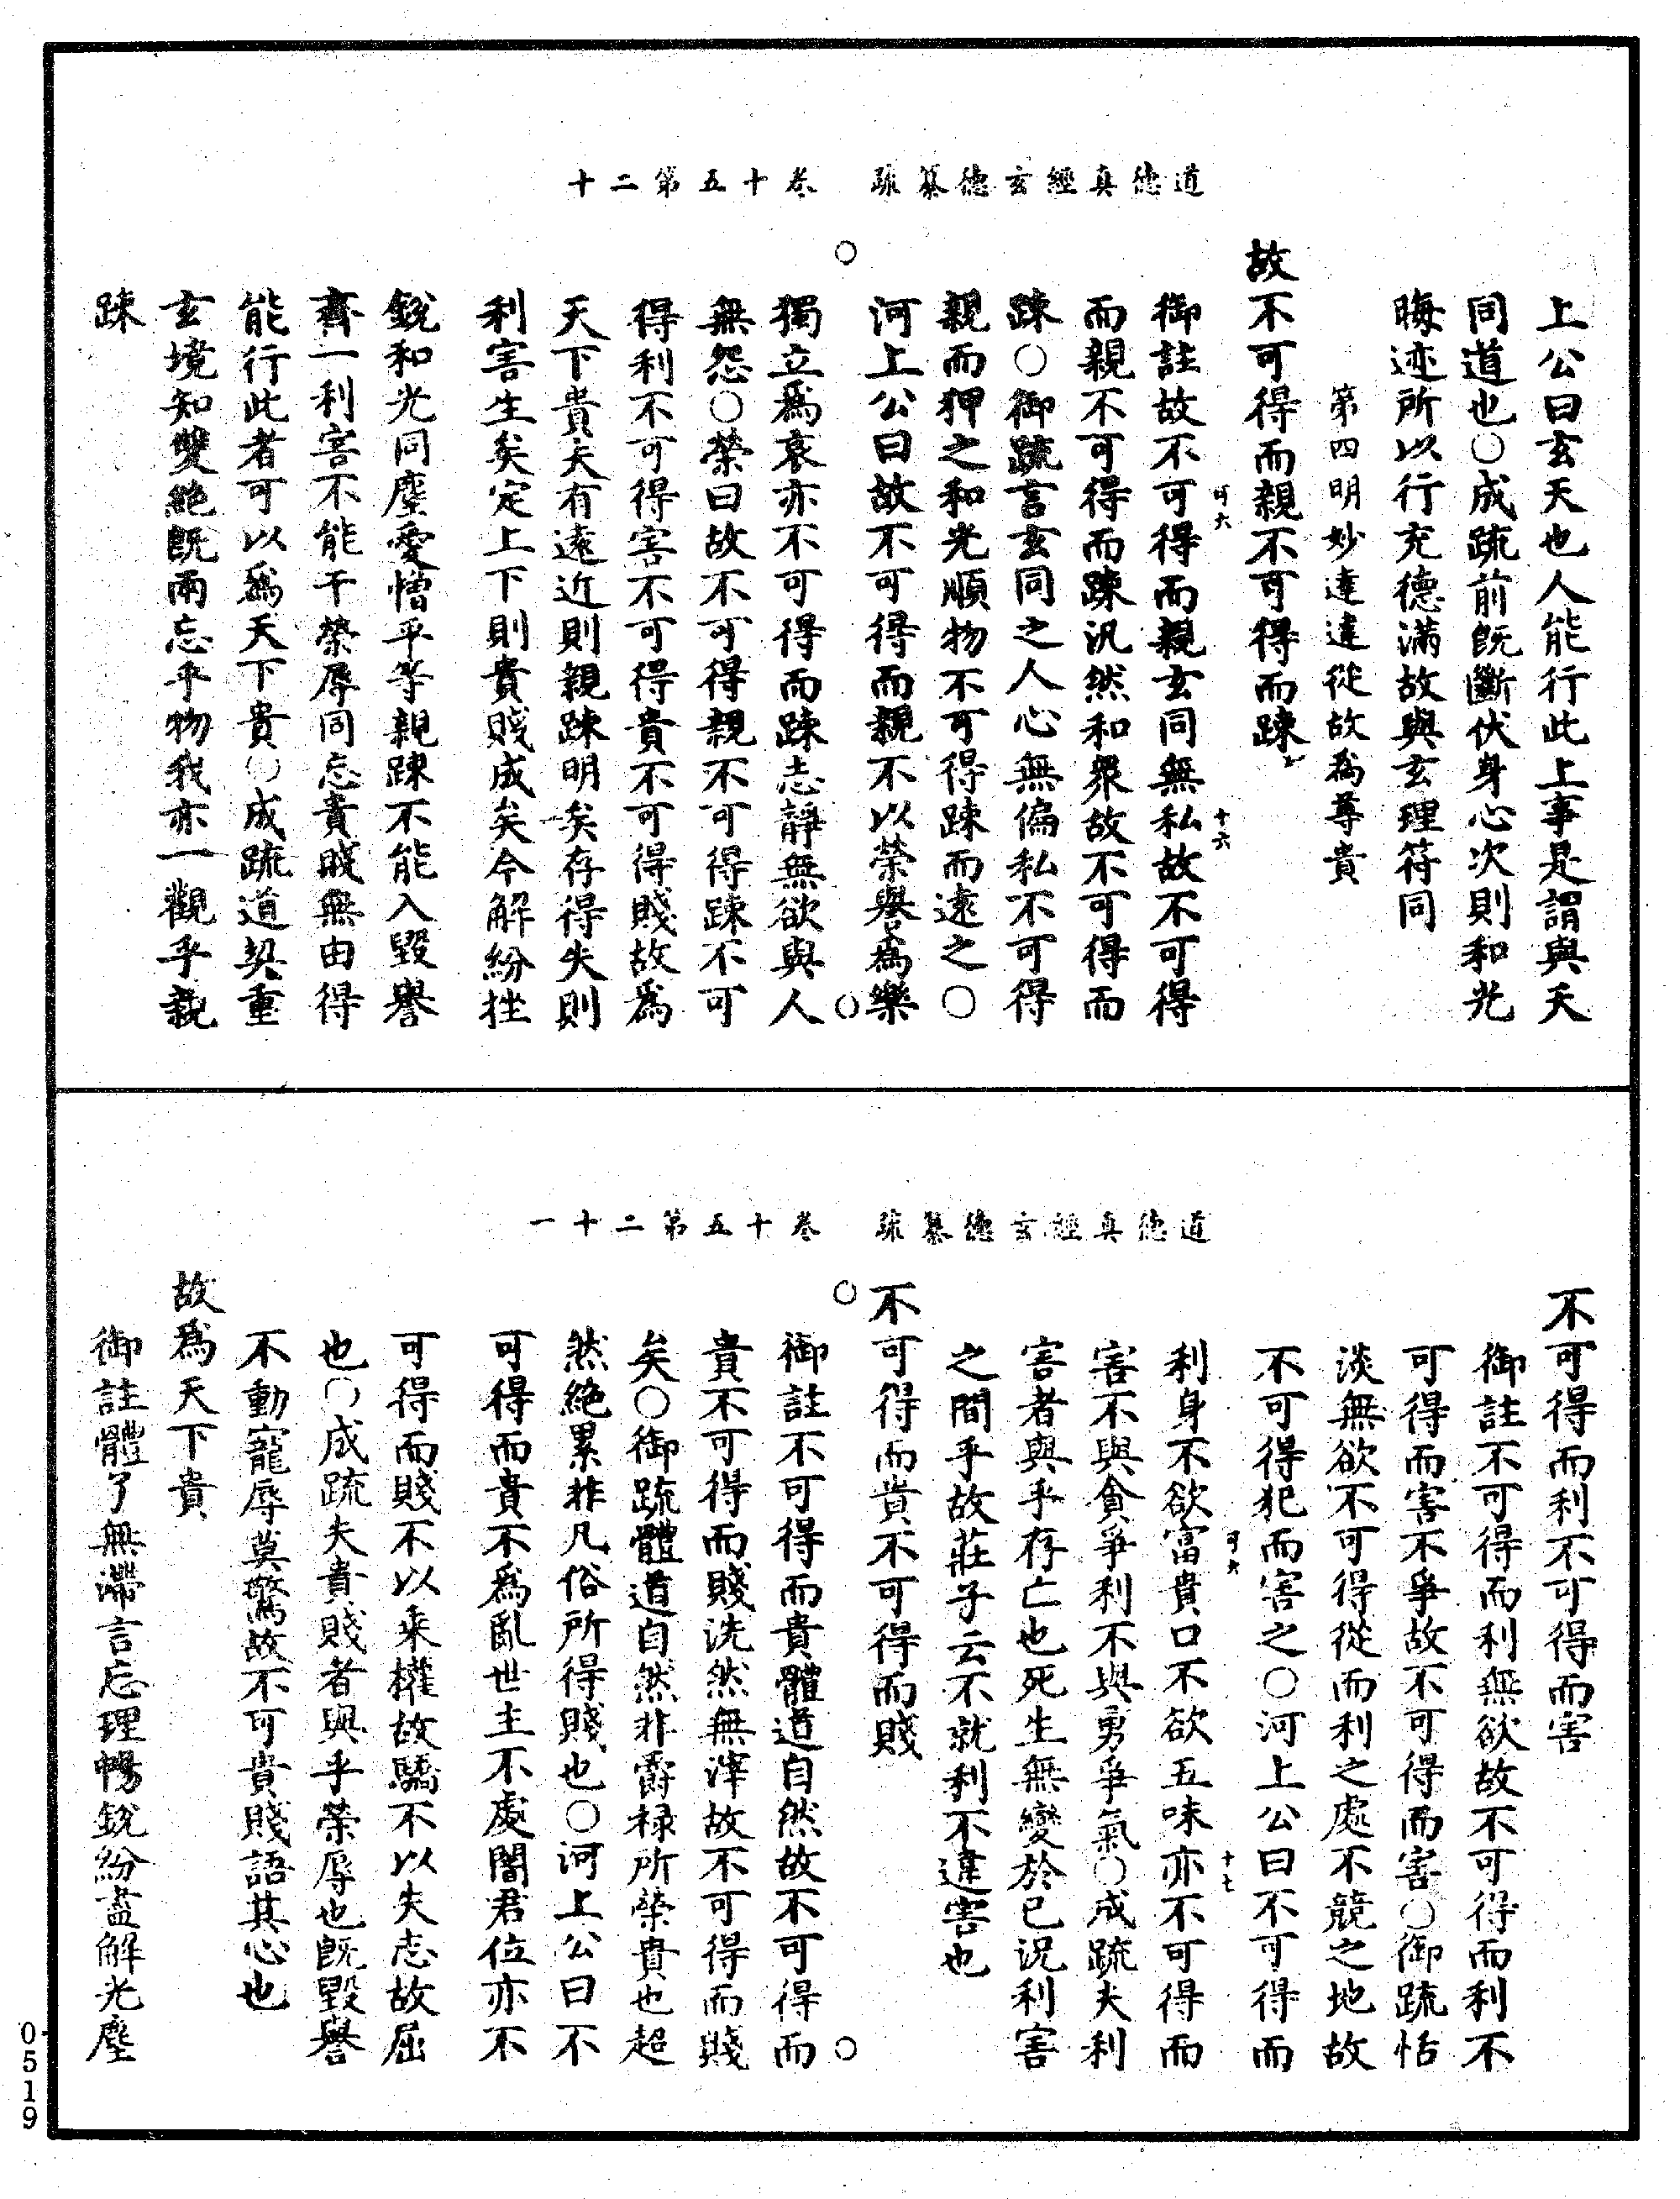 道德真經玄德纂疏　卷十五第二十
上公曰玄天也人能行此上事是謂與天
同道也○成疏前既斷伏身心次則和光
晦迹所以行充德滿故與玄理符同
第四明妙達違從故為尊貴
故不可得而親不可得而踈
可六
十六
御註故不可得而親玄同無私故不可得
而親不可得而踈汎然和衆故不可得而
踈○御疏言玄同之人心無偏私不可得
親而狎之和光順物不可得踈而遠之○
河上公曰故不可得而親不以榮譽爲樂
獨立爲哀亦不可得而踈志靜無欲與人
無怨○榮曰故不可得親不可得踈不可
得利不可得害不可得貴不可得賤故爲
天下貴夫有遠近則親踈明矣存得失則
利害生矣定上下則貴賤成矣今解紛挫
銳和光同塵愛憎平等親踈不能入毀譽
齊一利害不能干榮辱同忘貴賤無由得
能行此者可以爲天下貴○成疏道契重
玄境知雙絕既兩忘乎物我亦一觀乎親
踈
道德真經玄德纂疏　卷十五第二十一
不可得而利不可得而害
御註不可得而利無欲故不可得而利不
可得而害不爭故不可得而害○御疏恬
淡無欲不可得從而利之處不競之地故
不可得犯而害之○河上公曰不可得而
可六
十七
利身不欲富貴口不欲五味亦不可得而
害不與貪爭利不與勇爭氣○成疏夫利
害者與乎存亡也死生無變於已況利害
之間乎故莊子云不就利不違害也
不可得而貴不可得而賤
御註不可得而貴體道自然故不可得而
貴不可得而賤洗然無滓故不可得而賤
矣○御疏體道自然非爵祿所榮貴也超
然絕累非凡俗所得賤也○河上公曰不
可得而貴不爲亂世主不處闇君位亦不
可得而賤不以乘權故驕不以失志故屈
也○成疏夫貴賤者與乎榮辱也既毀譽
不動寵辱莫驚故不可貴賤語其心也
故爲天下貴
御註體了無滯言忘理暢銳紛盡解光塵
0519